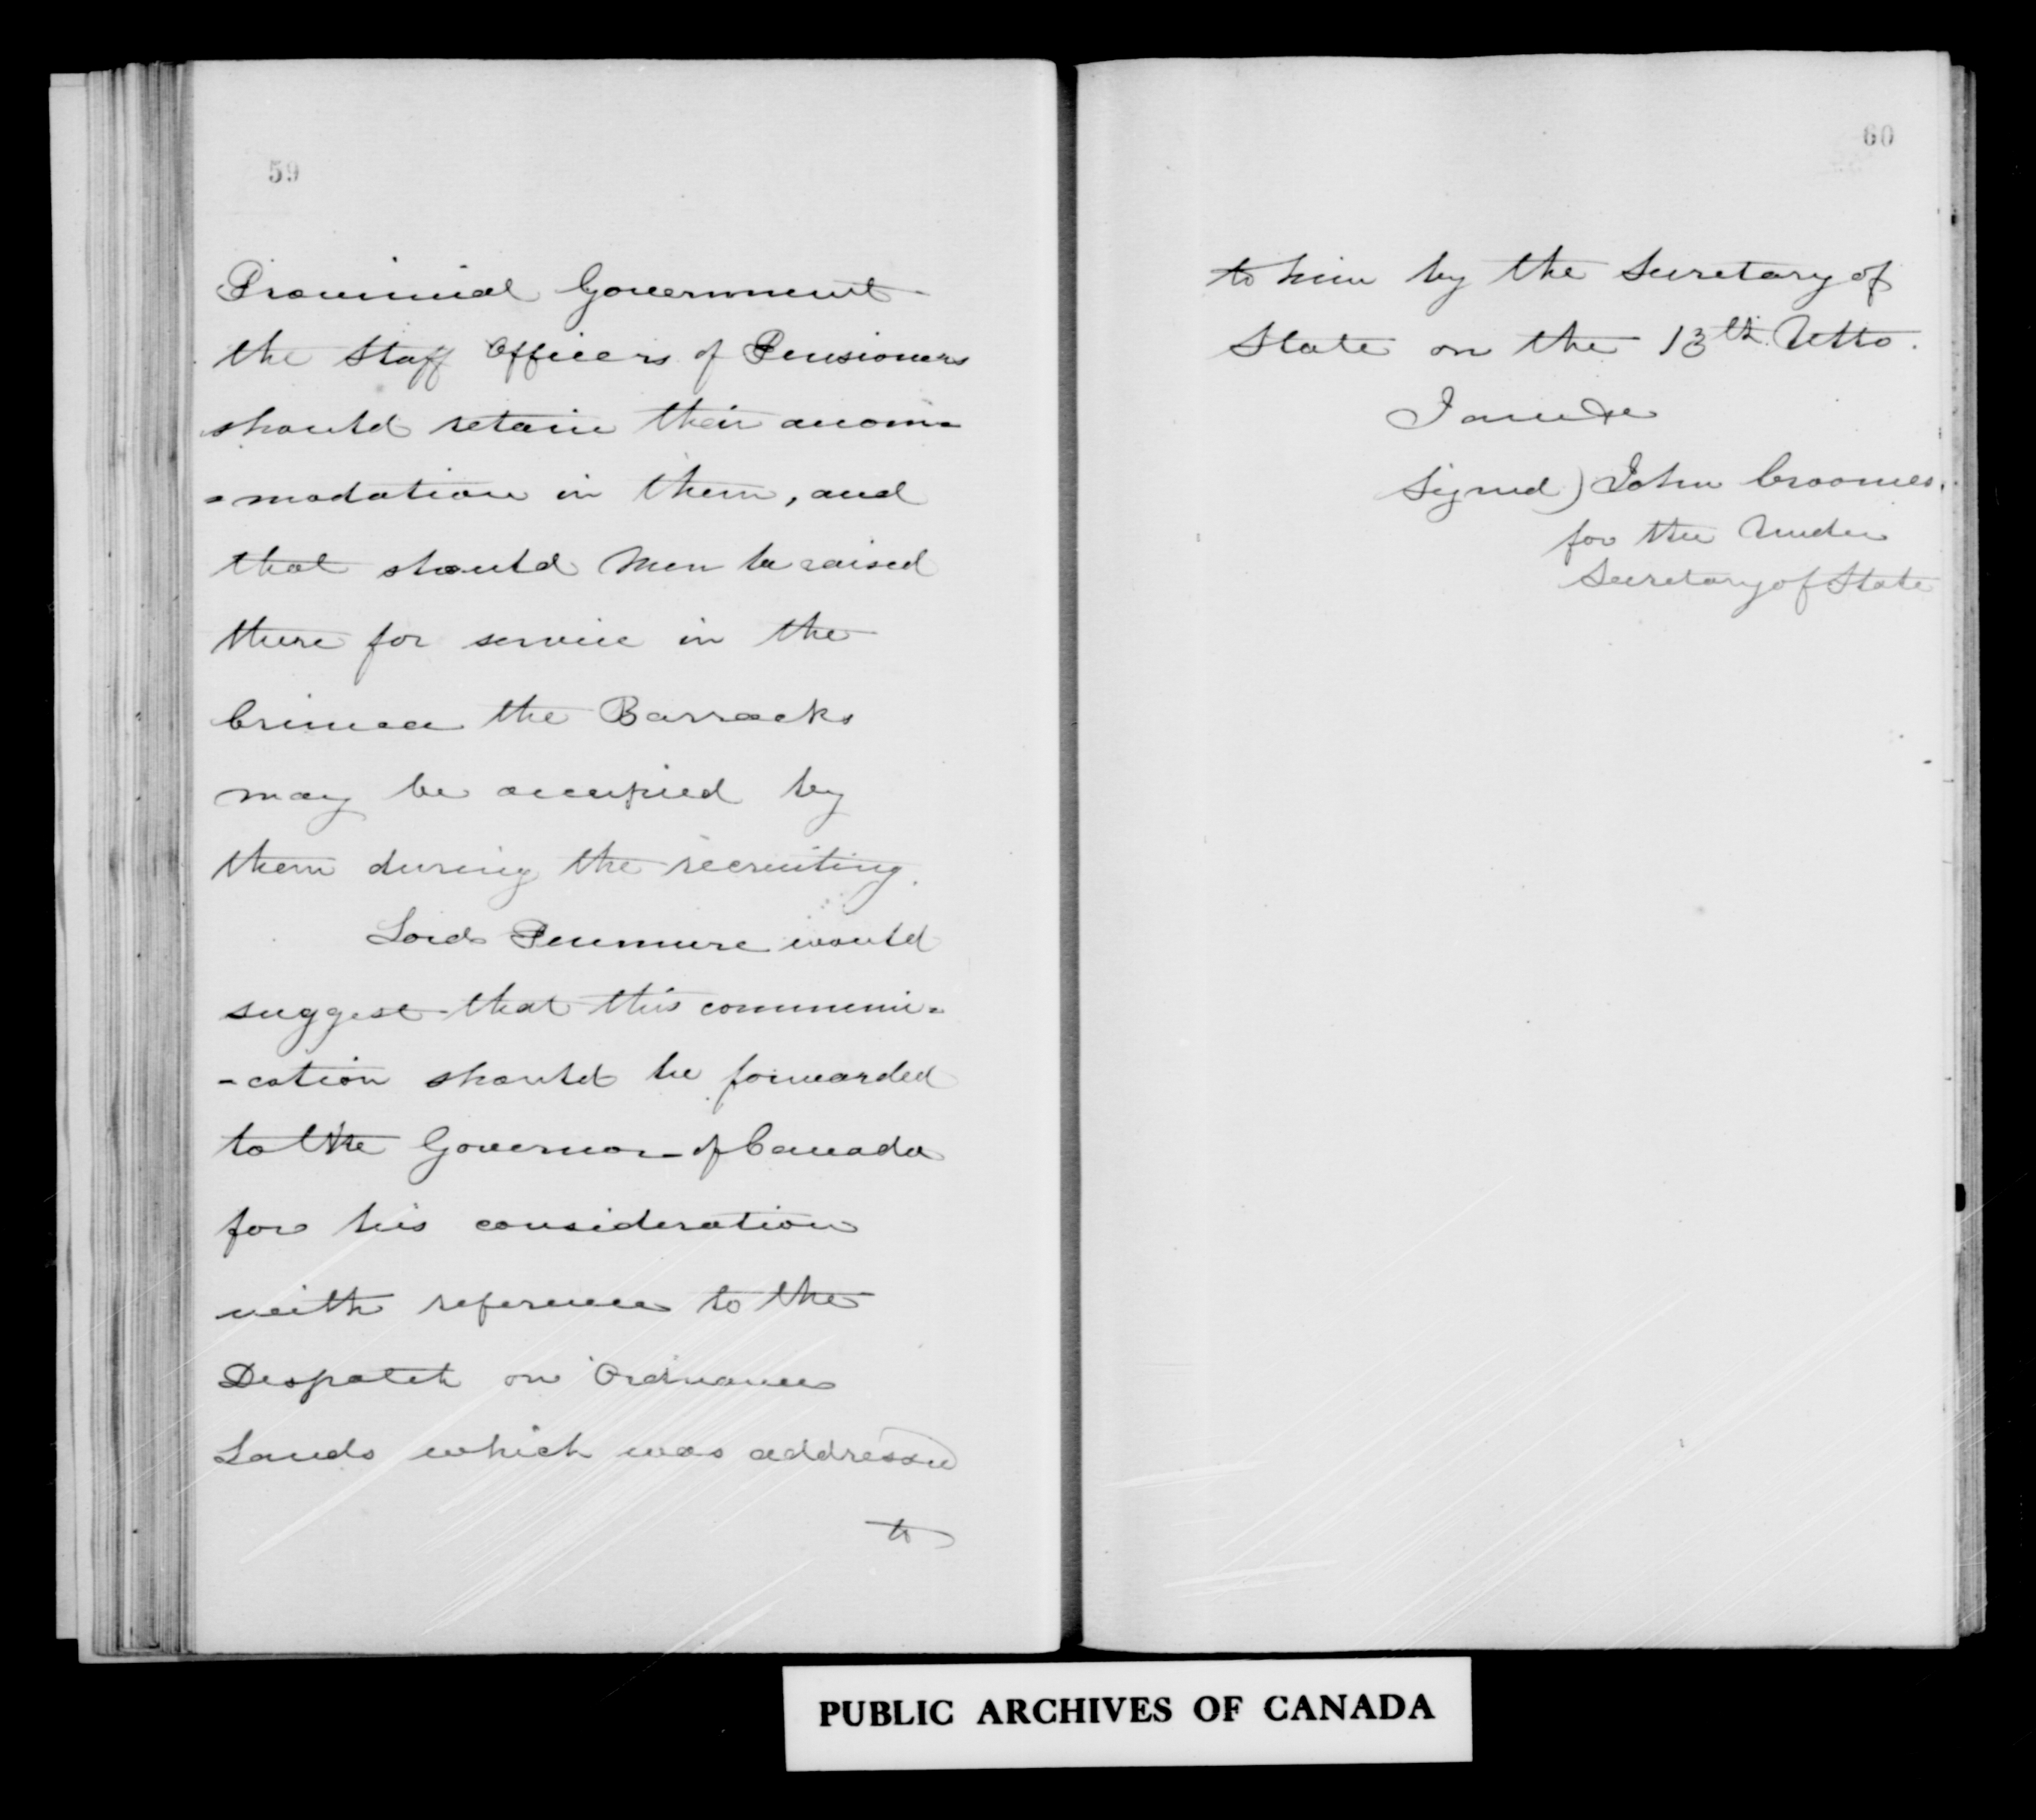 59
Provincial Government
the Staff Officers of Pensioners
should retain their accom=
=modation in them, and
that should Men be raised
there for service in the
Crimea the Barracks
may be occupied by
them during the recruiting.
Lord Panmure would
suggest that this communi=
=cation should be forwarded
to the Governor of Canada
for his consideration
with reference to the
Despatch on Ordnance
Lands which was addressed
to
60
to him by the Secretary of
State on the 13th Ulto.
I am &c
Signed) John Croomes.
for the Under
Secretary of State
PUBLIC ARCHIVES OF CANADA